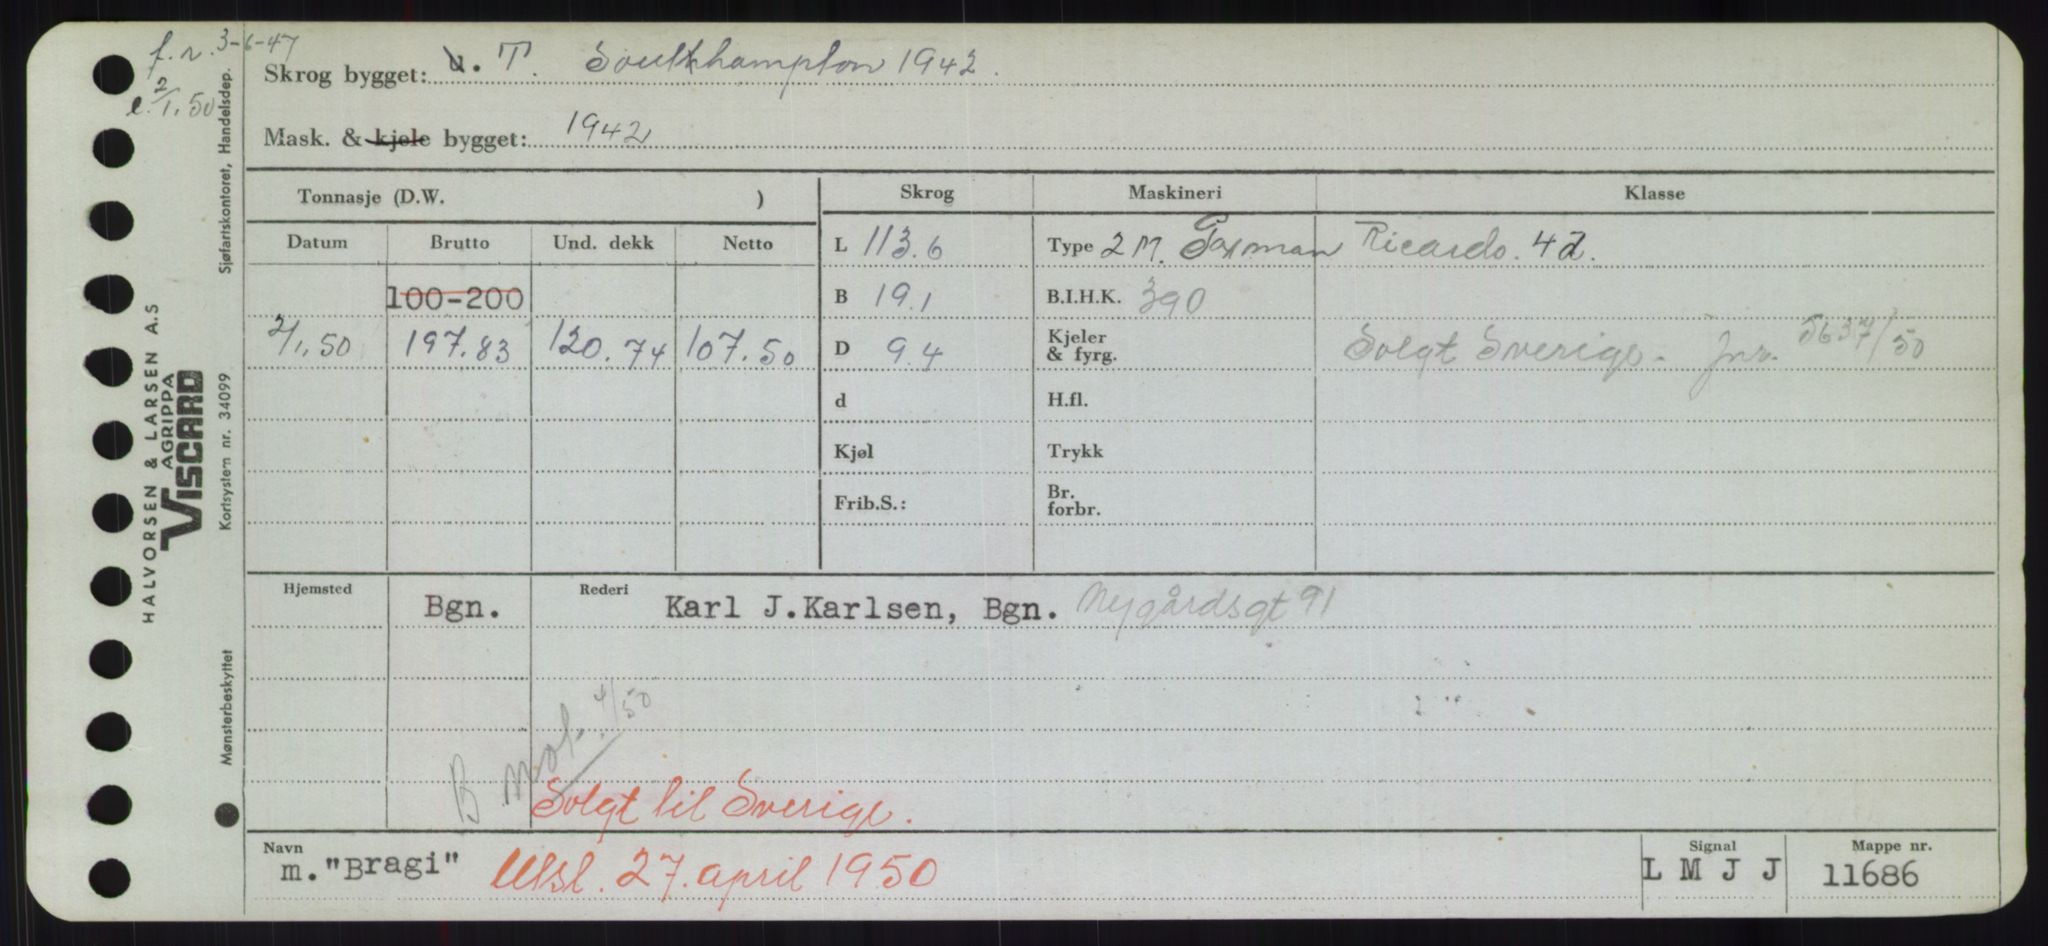 f.r. 3-6-47
e. 2/1.50
Skrog bygget: u. T. Southhampton 1942.
Mask. & kjele bygget: 1942
Tonnasje (D.W. )
Skrog
Maskineri
Klasse
Datum Brutto Und. dekk Netto
L 113.6
Type 2 M. Paxman Ricardo. 4 d.
100-200
B 19.1
B.I.H.K. 390
2/1.50 197.83 120.74 107.50
D 9.4
Kjeler
& fyrg.
Solgt Sverige. Jnr. 5637/50
d
H.fl.
Kjøl
Trykk
Frib.S.:
Br.
forbr.
Hjemsted Bgn.
Rederi Karl J.Karlsen, Bgn. Nygårdsgt 91
B mot. 4/50
Solgt til Sverige.
Navn m. "Bragi" Utsl. 27. april 1950
Signal L M J J
Mappe nr. 11686
HALVORSEN & LARSEN A.S
AGRIPPA
VISCARD
Sjøfartskontoret, Handelsdep.
Kortsystem nr. 34099
Mønsterbeskyttet